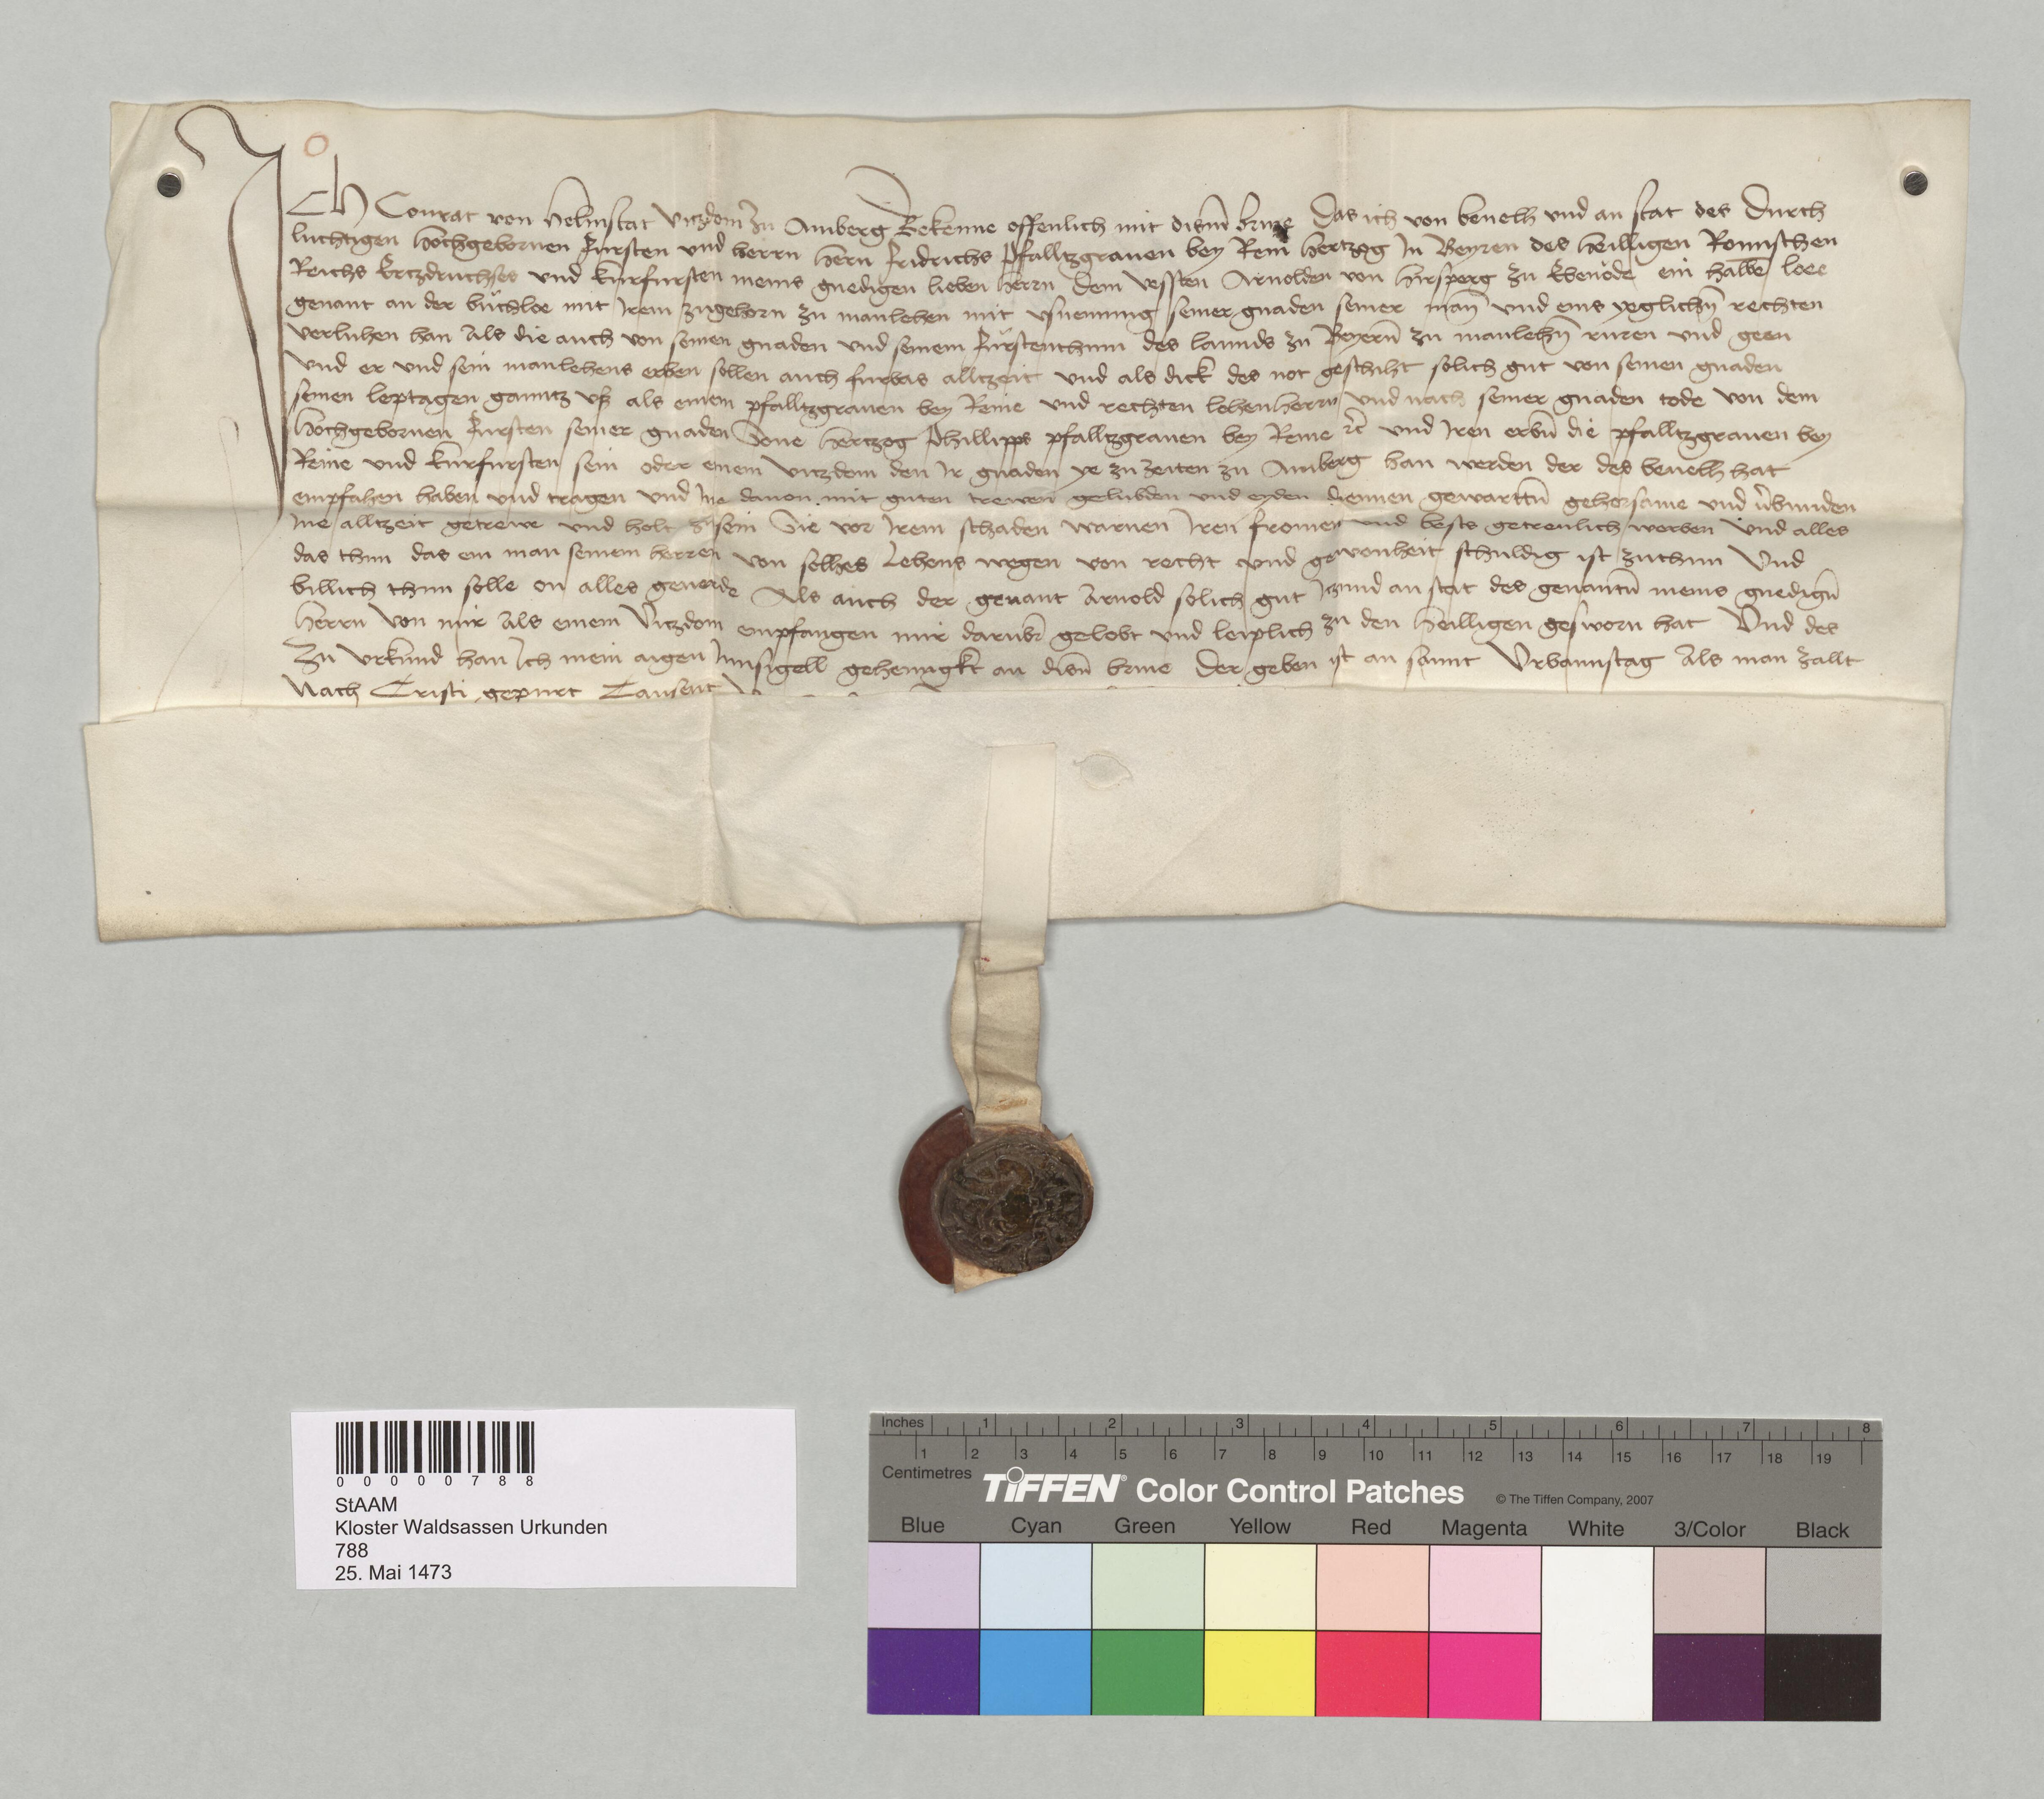 Ich Conrat von Helmstat Vitzdom zu Amberg Bekenne offenlich mit disem brive Das ich von bevelh und an stat des Durch
luchtigen hochgebornen Fursten und herrn hern Fridrichs Pfalltzgraven bey Rein hertzog In Beyren des heilligen Romischen
Reichs Ertzdruchses und kurfursten meins gnedigen lieben herrn dem vessten Arnolden von hirsperg zu Ebenode ein halbe loee
genant an der buchloe mit Irem zugehorn zu manlehen mit usnemung seiner gnaden seiner man und eins yeglichn rechten
verluhen han Als die auch von seinen gnaden und seinem Fürstenthum des lannds zu Beyern zu manlehn ruren und geen
und er und sein manlehens erben sollen auch furbas alltzeit und als dick des not geschiht solich gut von seinen gnaden
seinen leptagen ganntz uß als einem pfalltzgraven bey Reine und rechten lehenherrn und nach seiner gnaden tode von dem
hochgebornen Fursten seiner gnaden Sone hertzog Phillipps pfalltzgraven bey Reine etc und Iren erbn die pfalltzgraven bey
Reine und kurfursten sein oder einem vitzdom den Ir gnaden ye zu zeiten zu Amberg han werden der des bevelh hat
empfahen haben und tragen und Ine davon mit guten trewen gelubden und eyden diennen gewarttn gehorsame und v̉bunden
Ine alltzeit getrewe und holt zu sein Sie vor Irem schaden warnen Iren fromen und bests getreulich werben und alles
das thun das ein man seinem herren von solhes Lehens wegen von recht und gewonheit schuldig ist zuthun Und
billich thun solle on alles geverde Als auch der genant Arnold solich gut Itzund an stat des genantn meins gnedign
herrn von mir Als einem Vitzdom empfangen mir darub̉ gelobt und leiplich zu den heilligen gesworn hat Und des
Zu urkund han Ich mein aigen Innsigell gehenngkt an disn brive Der geben ist an sannt Urbannstag Als man zallt
Nach Cristi gepurt Tausent
00000788
StAAM
Kloster Waldsassen Urkunden
788
25. Mai 1473
Inches 1 2 3 4 5 6 7 8
1 2 3 4 5 6 7 8 9 10 11 12 13 14 15 16 17 18 19
Centimetres
TIFFEN® Color Control Patches © The Tiffen Company, 2007
Blue Cyan Green Yellow Red Magenta White 3/Color Black